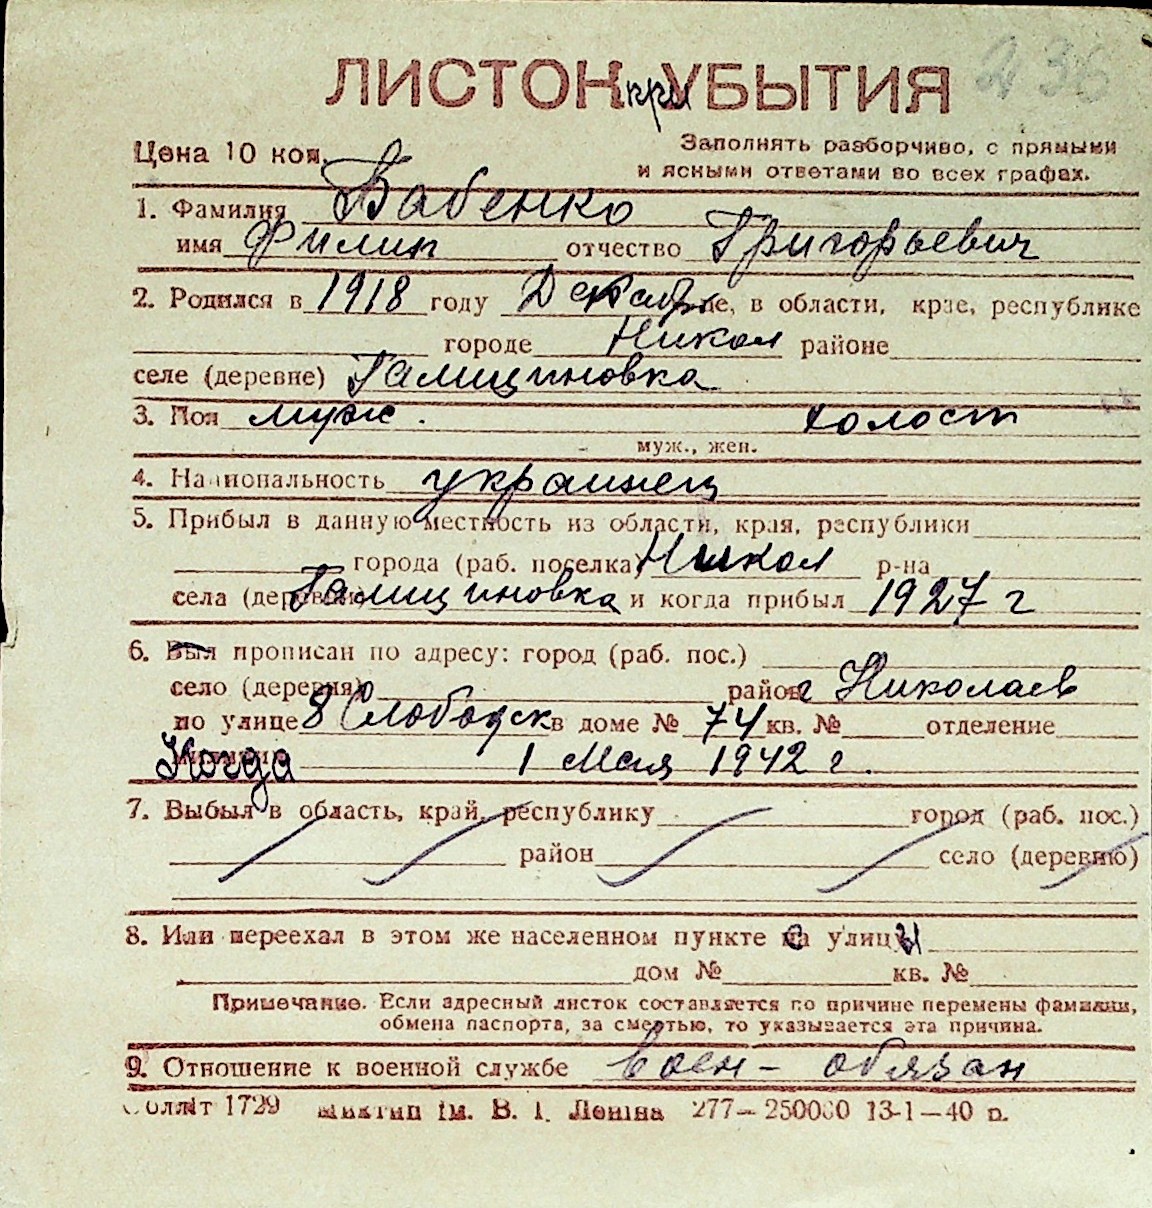 236
ЛИСТОК при УБЫТИЯ
Цена 10 коп.
Заполнять разборчиво, с прямыми
и ясными ответами во всех графах.
1. Фамилия Бабенко
имя Филип отчество Григорьевич
2. Родился в 1918 году Декабре, в области, крае, республике
городе Никол районе
селе (деревне) Галициновка
3. Пол муж. холост
муж., жен.
4. Национальность украинец
5. Прибыл в данную местность из области, края, республики
города (раб. поселка) Никол р-на
села (деревни) Галициновка и когда прибыл 1927 г
6. Был прописан по адресу: город (раб. пос.)
село (деревня) район г Николаев
по улице 8 Слободск в доме № 74 кв. № отделение
Когда 1 Мая 1942 г.
7. Выбыл в область, край, республику город (раб. пос.)
район село (деревню)
8. Или переехал в этом же населенном пункте с улицы
дом № кв. №
Примечание. Если адресный листок составляется по причине перемены фамилии,
обмена паспорта, за смертью, то указывается эта причина.
9. Отношение к военной службе воен-обязан
Обллiт 1729 Миктип iм. В. I. Ленiна 277—250000 13-1—40 р.